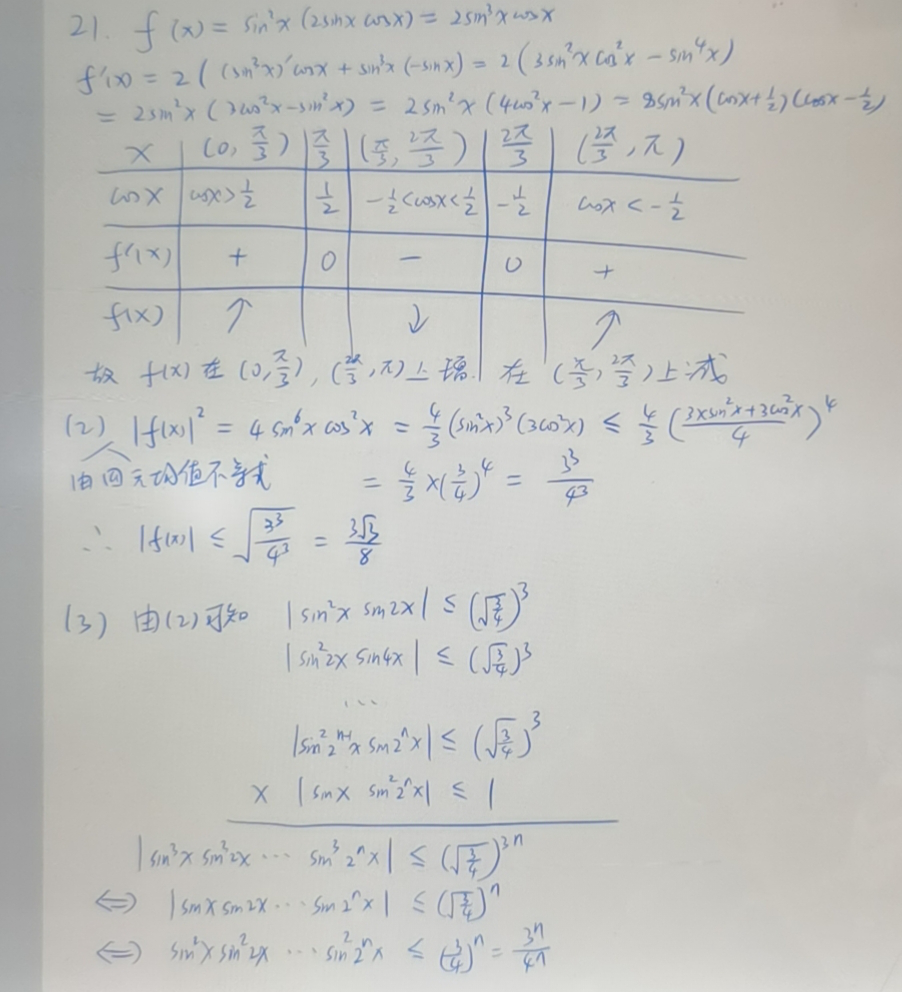 21. f(x) = sin²x (2sinx cosx) = 2sin³x cosx
f'(x) = 2((sin³x)'cosx + sin³x(-sinx) = 2(3sin²x cos²x - sin⁴x)
= 2sin²x(3cos²x-sin²x) = 2sin²x(4cos²x-1) = 8sin²x(cosx+1/2)(cosx-1/2)
x (0, π/3) π/3 (π/3, 2π/3) 2π/3 (2π/3, π)
cosx cosx>1/2 1/2 -1/2<cosx<1/2 -1/2 cosx<-1/2
f'(x) + 0 - 0 +
f(x) ↑ ↓ ↑
故 f(x) 在 (0, π/3), (2π/3, π)上增. 在 (π/3, 2π/3)上减
(2) |f(x)|² = 4 sin⁶x cos²x = 4/3 (sin²x)³(3cos²x) ≤ 4/3 ((3×sin²x+3cos²x)/4)⁴
由四元均值不等式 = 4/3 ×(3/4)⁴ = 3³/4³
∴ |f(x)| ≤ √(3³/4³) = 3√3/8
(3) 由(2)可知 |sin²x sin2x| ≤ (√(3/4))³
|sin²2x sin4x| ≤ (√(3/4))³
...
|sin²2ⁿ⁻¹x sin2ⁿx| ≤ (√(3/4))³
× |sinx sin²2ⁿx| ≤ 1
|sin³x sin³2x ··· sin³2ⁿx| ≤ (√(3/4))³ⁿ
⇔ |sinx sin2x ··· sin2ⁿx| ≤ (√(3/4))ⁿ
⇔ sin²x sin²2x ··· sin²2ⁿx ≤ (3/4)ⁿ = 3ⁿ/4ⁿ